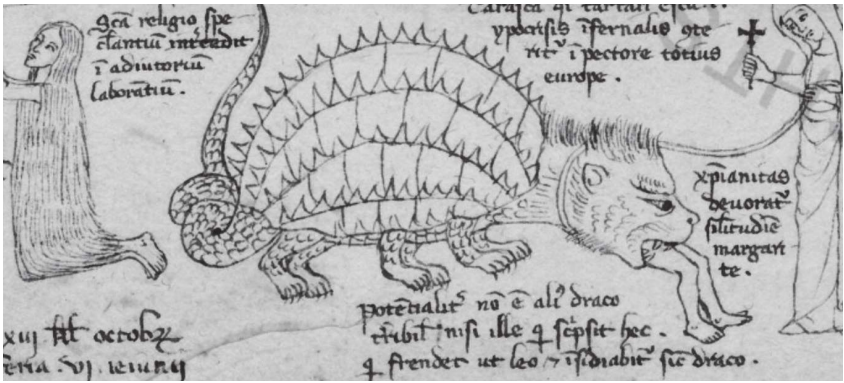 Scā religio spe
clantiū intēdit
ī adiutoriū
laborātiū.
Tarasca qī tartari
ypocrisis īfernalis
ritᷣ ī pectore totius
europe.
xp̄ianitas
deuoratᷣ
margari
te.
potētialitᷣ nō ē aliᷣ draco
nisi ille qͥ scͥpsit hec.
qͥ frendet ut leo ⁊ īsidiabitᷣ sic̄ draco.
xiii kł octobꝝ
feria. vi. ieiunii